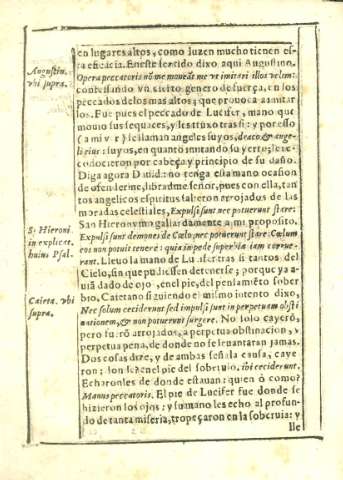 en lugares altos, como luzen mucho tienen es-
ta eficacia. En este sentido dixo aqui Augustino.
Augustin.
vbi supra.
Opera peccatoris nõ me moueãt me vt imitari illos velim:
confessando vn cierto genero de fuerça, en los
peccados de los mas altos; que prouoca a imitar
los. Fue pues el peccado de Lucifer, mano que
mouio sus sequaces, y les truxo tras si: y por esso
(a mi v r) se llaman angeles suyos,
lis eius: suyos, en quanto imitando su yerro; le re-
conocieron por cabeça y principio de su daño.
Diga agora Dauid: no tenga essa mano ocasion
de ofenderme, libradme señor, pues con ella, tan
tos angelicos espiritus salieron arrojados de las
moradas celestiales, Expulsi sunt nec potuerunt stare:
San Hieronymo gallardamente a mi proposito.
S. Hieroni.
in explicat.
huius Psal.
Expulsi sunt demones de Cœlo, nec potuerunt stare. Cælum
eos non potuit tenere: quia impede superbia iam corrue-
rant. Lleuo la mano de Lucifer tras si tantos del
Cielo, sin que pudiessen detenerse; porque ya a-
uiã dado de ojo, en el pie, del pensamiẽto sober
Caieta. vbi
supra.
bio, Caietano siguiendo el mismo intento dixo,
Nec solum ceciderunt sed impulsi sunt in perpetuam obsti
nationem, & non potuerunt surgere. No solo cayerõ,
pero fuerõ arrojados, a perpetua obstinacion, y
perpetua pena, de donde no se leuantaran jamas.
Dos cosas dize, y de ambas señala causa, caye
ron: en el pie del soberuio, ibi ceciderunt.
Echaronles de donde estauan: quien ó como?
Manus peccatoris. El pie de Lucifer fue donde se
hizieron los ojos: y su mano les echo al profun-
do de tanta miseria, tropeçaron en la soberuia: y
lle